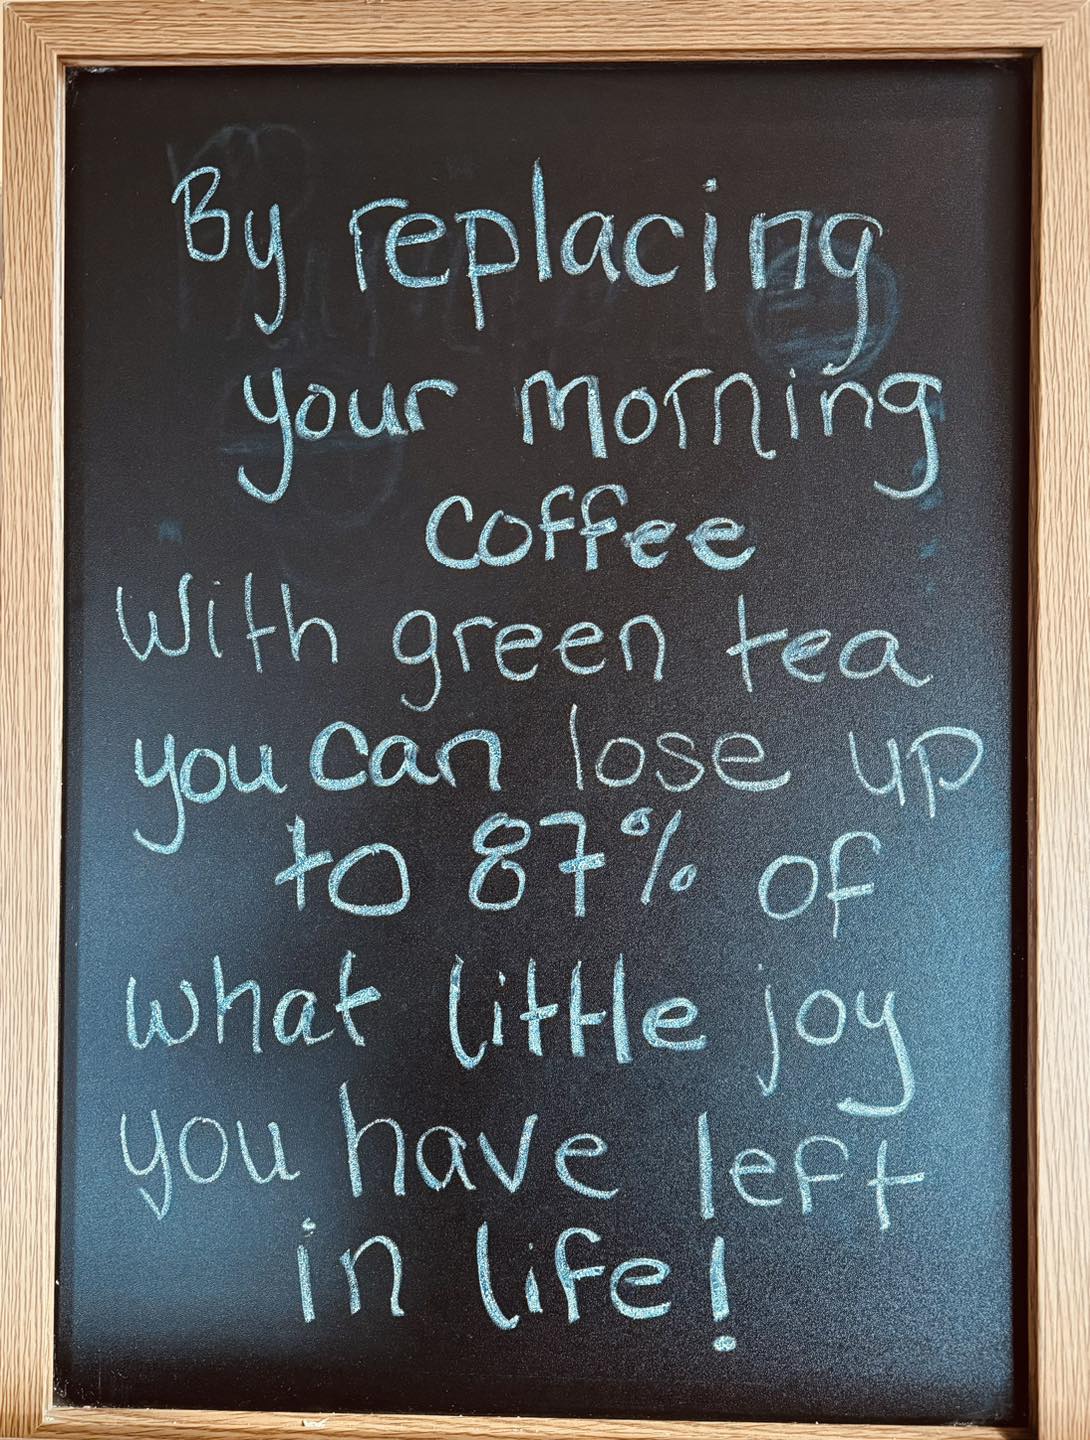 By replacing
your morning
coffee
With green tea
you can lose up
to 87% of
what little joy
you have left
in life!